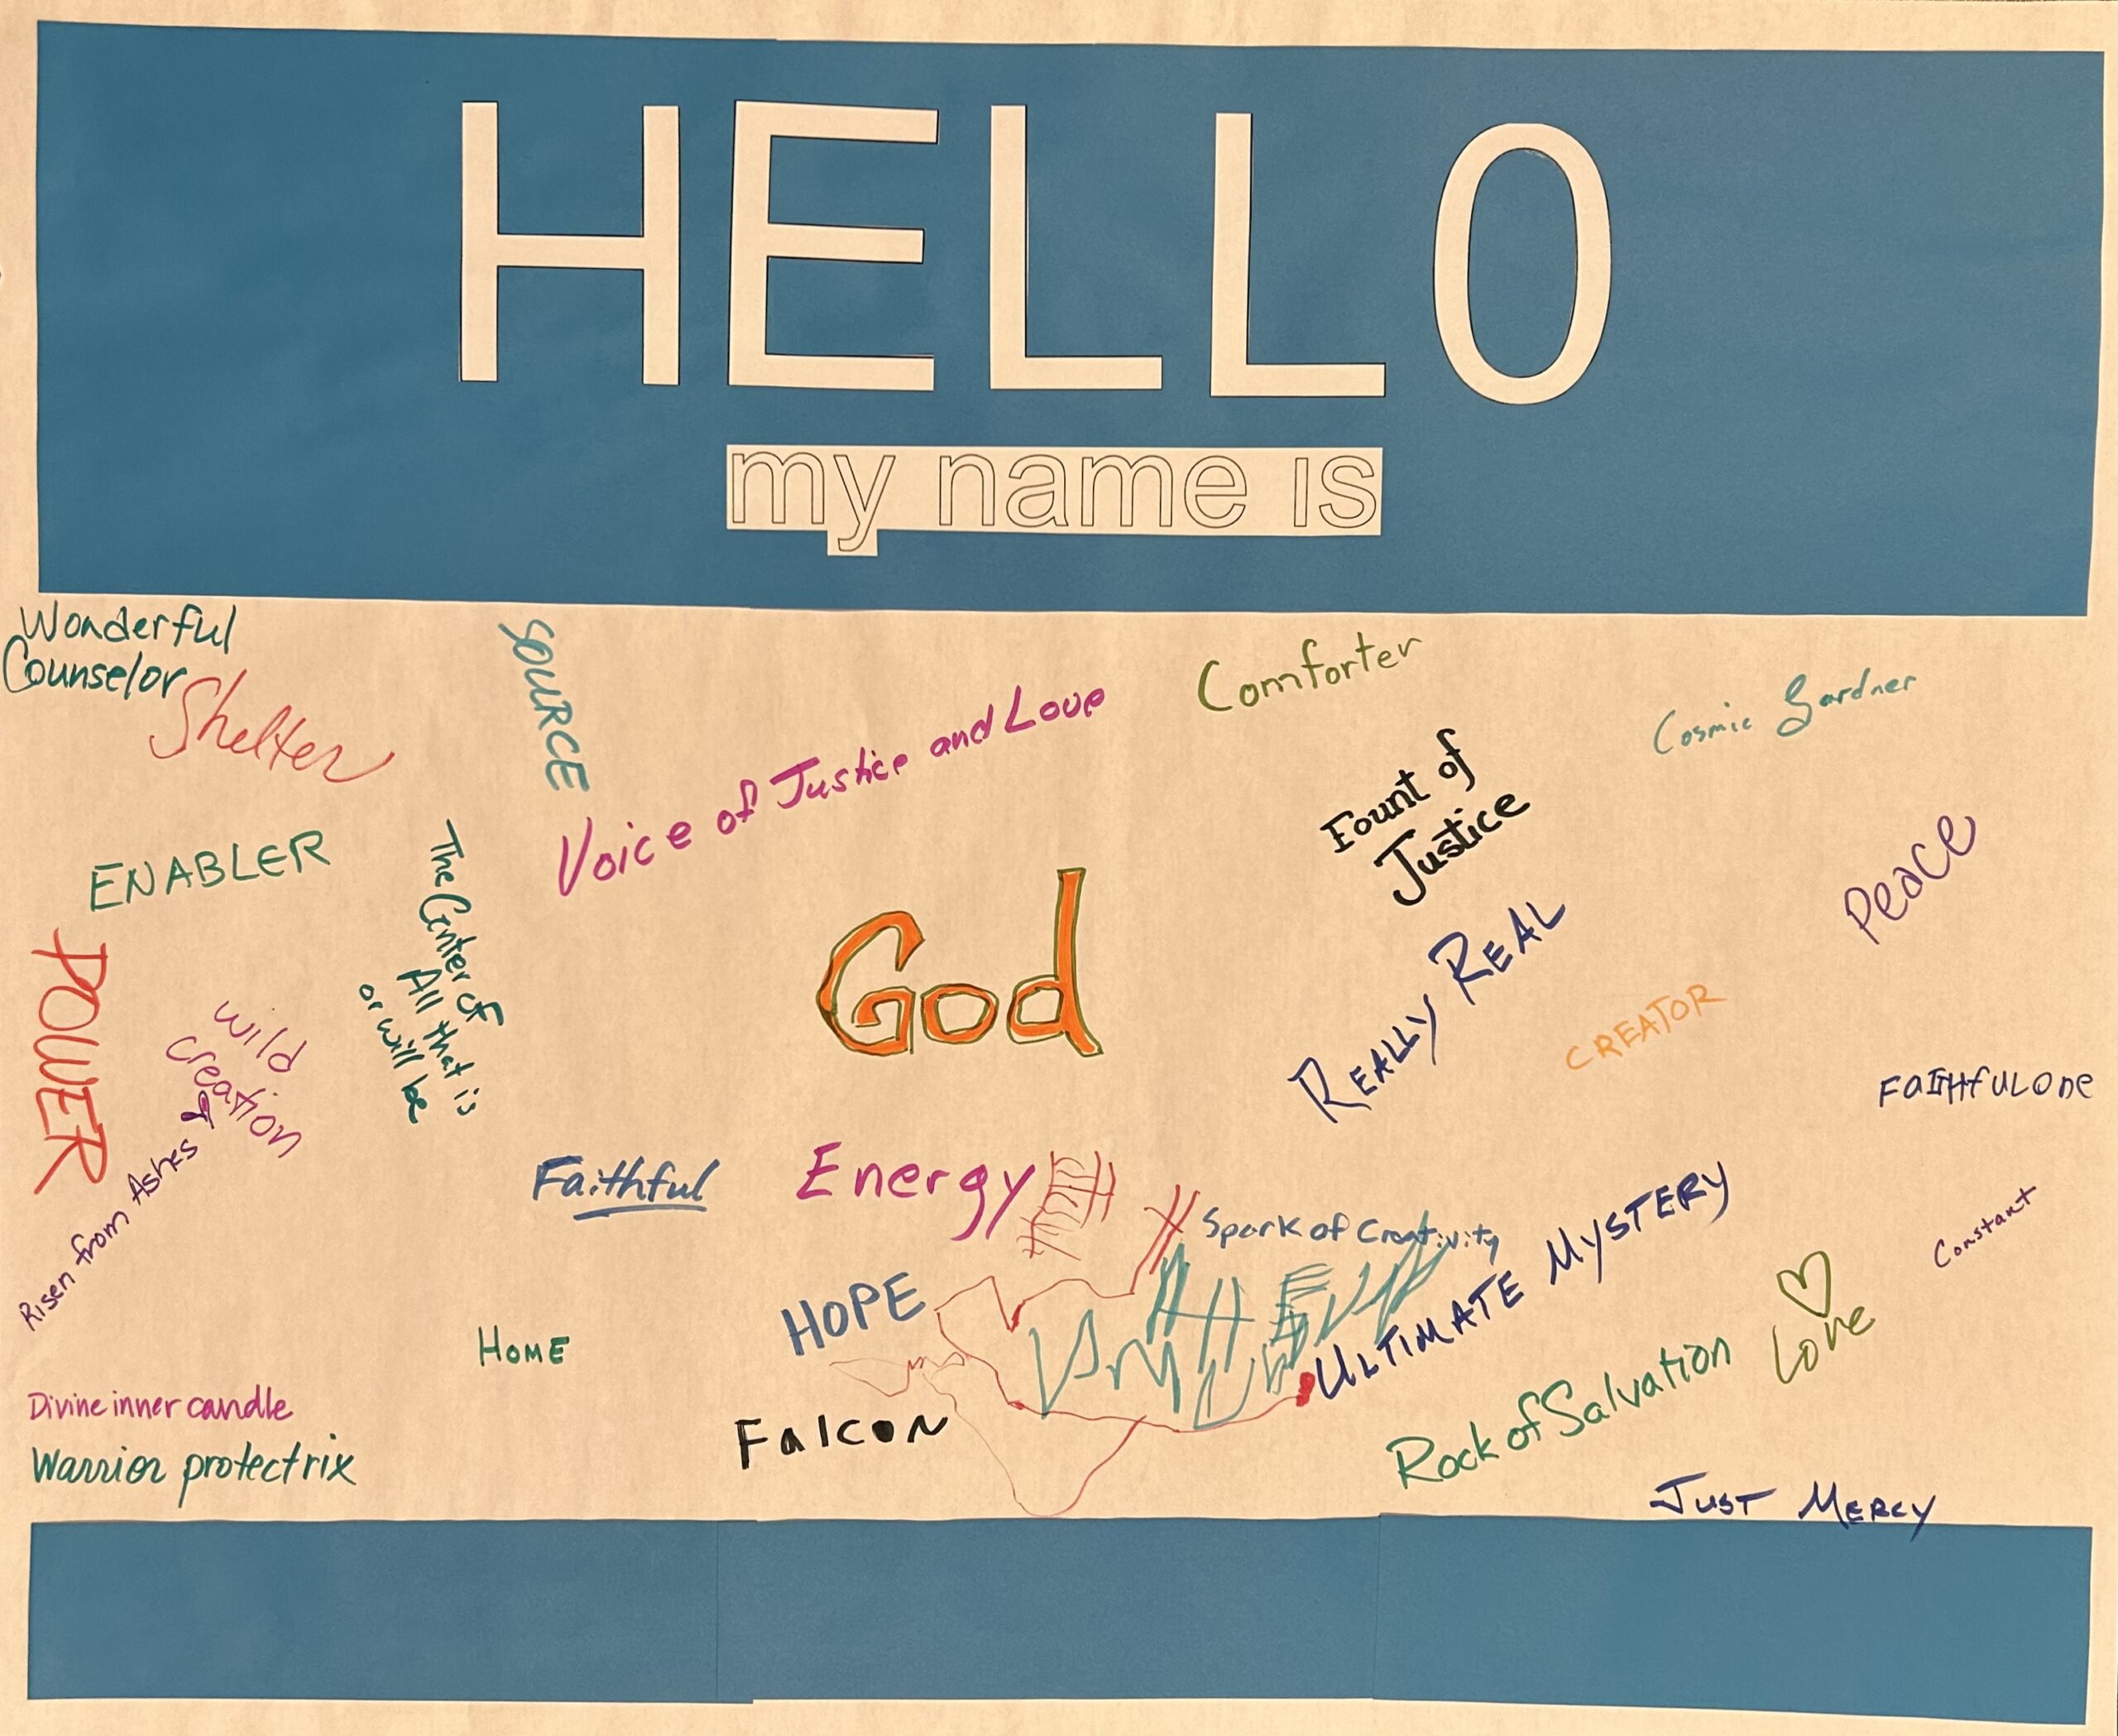 HELLO
my name is
Wonderful
Counselor
Shelter
SOURCE
Voice of Justice and Love
Comforter
Cosmic Gardner
Fount of
Justice
ENABLER
The Center of
All that is
or will be
God
REALLY REAL
Peace
CREATOR
FAITHfULOne
POWER
Wild
creation
Risen from Ashes
Faithful
Energy
Spark of Creativity
ULTIMATE MYSTERY
Constant
HOPE
HOME
Love
Divine inner candle
Warrior protectrix
FalcoN
Rock of Salvation
JUST MERCY